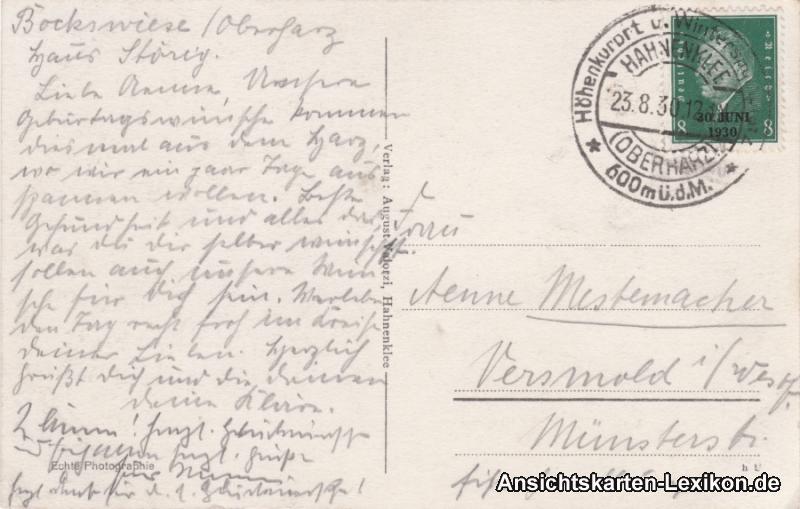 Bockswiese/Oberharz
Haus Störig.
Liebe Aenne, Unsere
Geburtagswünsche kommen
diesmal aus dem Harz,
wo wir ein paar Tage aus
spannen wollen. Beste
Gesundheit und alles das,
was du dir selber wünschst
sollen auch unsere Wün
sche für Dich sein. Verlebe
den Tag recht froh im Kreise
deiner Lieben. Herzlich
grüßt Dich und die deinen
deine Kläre.
L. Herzl. Glückwünsche
und herzl. Grüße
Echte Photographie
Verlag: August Valorzi, Hahnenklee
Höhenkurort u. Winters
HAHNENKLEE
23.8.30.12
(OBERHARZ)
600mü.d.M.
Deutsches Reich
30. JUNI
1930
8 8
Frau
Aenne Mestemacher
Versmold i/Westf.
Münsterstr.
Ansichtskarten-Lexikon.de